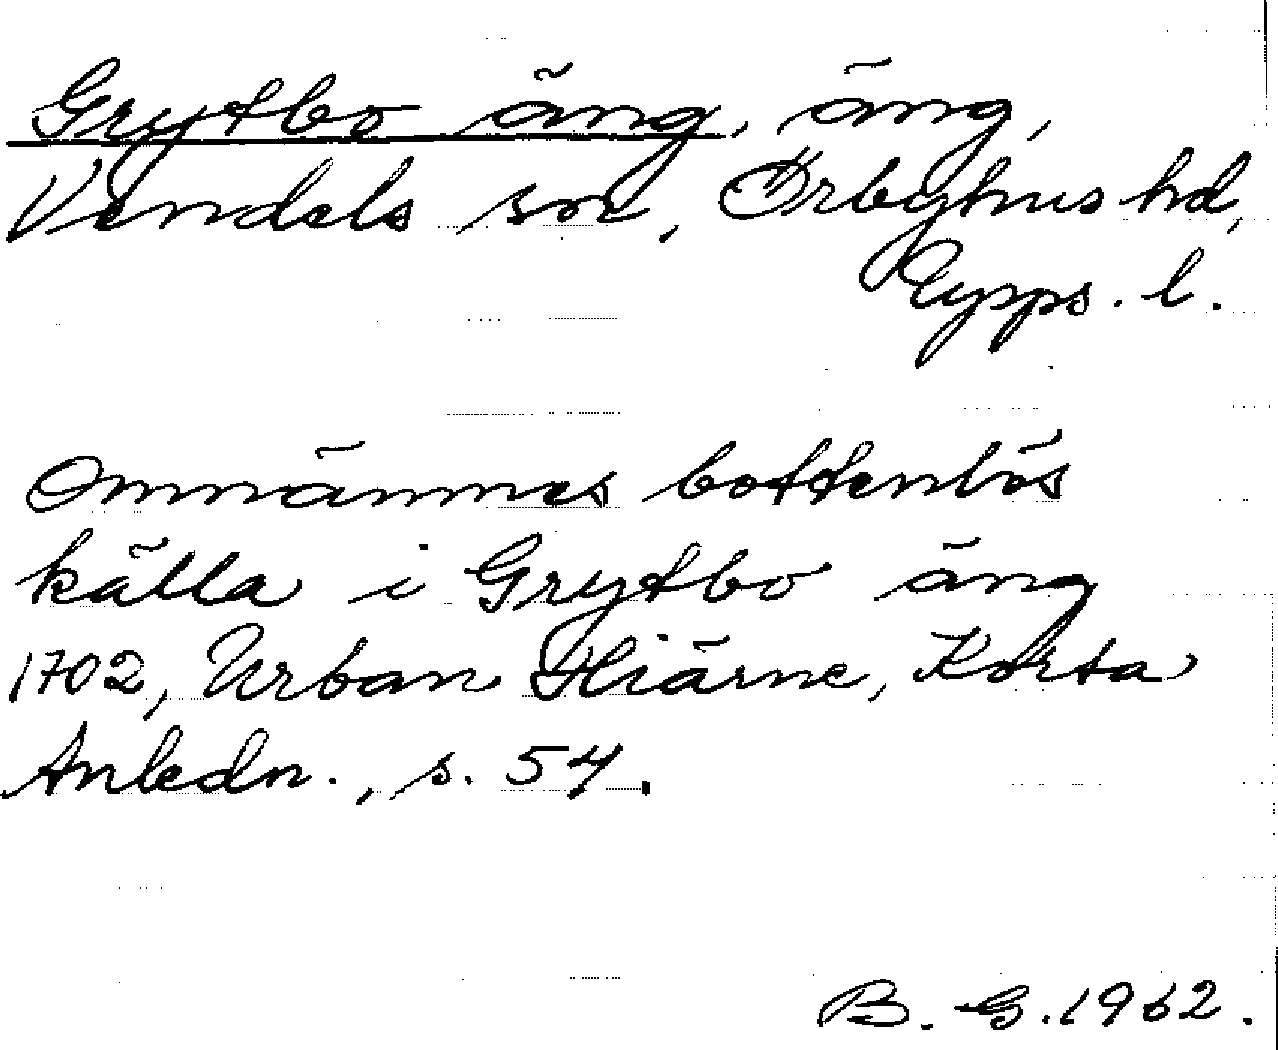 Grytbo äng, äng,
Vendels sn, Örbyhus hd,
Upps. l.
Omnämnes bottenlös
källa i Grytbo äng
1702, Urban Hiärne, Korta
Anledn., s. 54.
B. G. 1962.